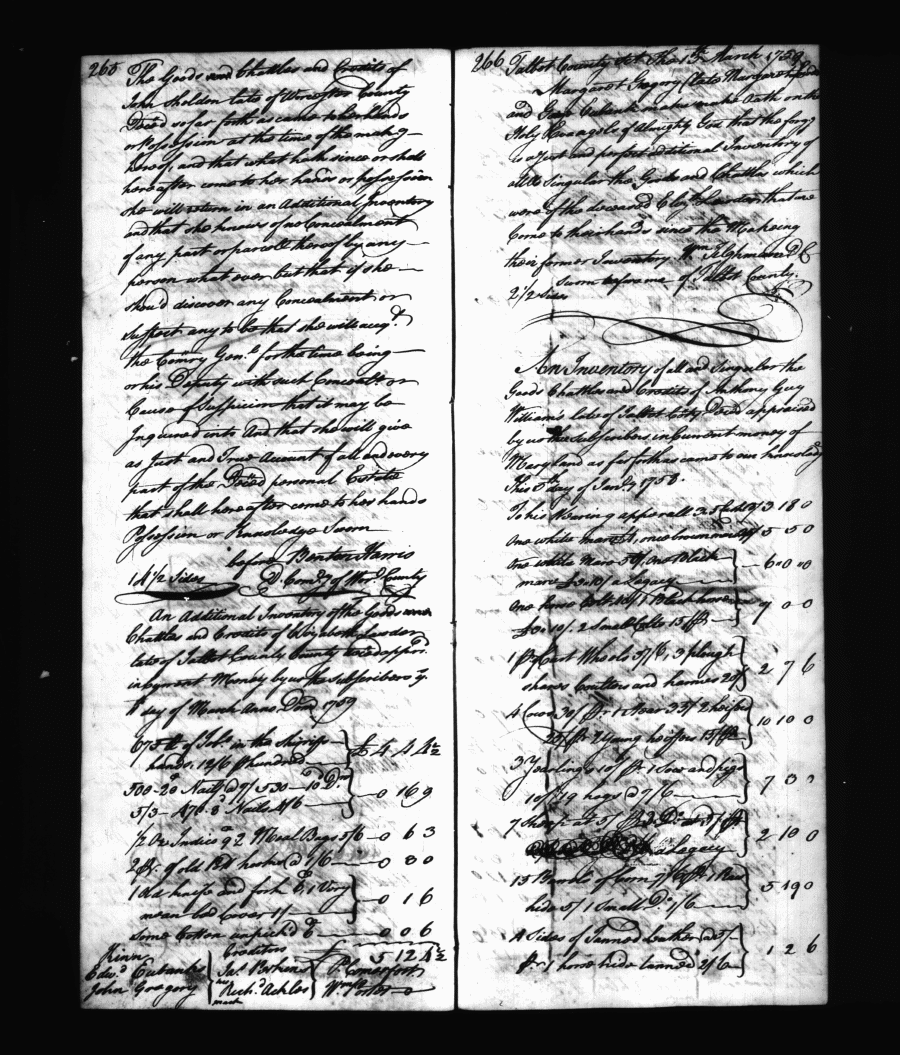 265
The Goods and Chattles and Credits of
John Sheldon late of Worcester County
Deced so far forth as came to her hands
or Possession at the time of the making
hereof, and that what hath since or shall
hereafter come to her hands or possession
she will return in an Additional Inventory
and that she knows of no Concealment
of any part or parcell thereof by any
person what ever but that if she
should discover any Concealment or
Suspect any to be that she will acqt.
the Comry Genl. for the time being
or his Deputy with such Concealt. or
Cause of Suspicion that it may be
Inquired into And that she will give
as Just and True Account of all and every
part of the Deced personal Estate
that shall hereafter come to her hands
Possession or Knowledge Sworn
before Benton Harris
14 1/2 Sides D. Comry of Worr. County
An Additional Inventory of the Goods
Chattles and Credits of Elizabeth
late of Talbot County County deced apprd.
in Current Money by us the Subscribers ye.
day of March Anno Dom 1759
675 lb of Tob. in the Sheriffs
hands, 12/6 P hundred £ 4 4 4 1/2
500 - 20d Nails @ 7/ 530 - 10d Do.
5/3 - 470. 8d Nails 4/6 0 16 9
1/2 Oz Indico & 2 Meal Bags 5/6 0 6 3
2 pr. of old Bed @ 1/6 0 3 0
1 Old knife and fork & 1 Very
mean bed Cover 1/ 0 1 6
Some Cotton unpick'd 0 0 6
£ 5 12 4 1/2
Kinn Creditors
Edwd. Eubanks Jas. Perkins P. Comerfort
John Gregory Richd. Acklers Wm. Porter
mark
266
Talbot County Sct. The 15th March 1759
Margaret Gregory (late Margaret
and Eubank make Oath on the
Holy Evangels of Almighty God that the forgg
is a Just and perfect additional Inventory of
all & Singular the Goods and Chattles which
were of the deceased that are
Come to their hands since the Makeing
their former Inventory Wm. Tilghman D C
Sworn before me of Talbot County.
2 1/2 Sides
An Inventory of all and Singular the
Goods Chattles and Credits of Anthony Guy
Williams late of Talbot County Deced appraised
by us the Subscribers in Current money of
Maryland as far forth as came to our knowledge
This day of Janry. 1758.
To his Wearing apperall 3 18 0
One white mare one brown 5 5 0
One white Mare 5 One Black
mare a legacy 6 0 0
One horse Colt 1 Black
£ 0: 10/, 2 Small Colts 15/ pr. 7 0 0
1 pr Cart Wheels 5/6, 3 plough
shares Coulters and harness 20/ 2 7 6
4 Cows 30/ pr. 1 Steer 35/ 2 heifers
25/ pr 2 Young heifers 15/ pr. 10 10 0
3 Yearlings 10/ pr. 1 Sow and pigs
10/ 19 hogs @ 7/6 7 3
7 Sheep at 5/ Do.
a Legacy 2 10 0
15 Barrels of Corn 7/6 pr. 1 Raw
hide 5/ 1 Small Do. 1/6 5 19 0
4 Sides of Tanned Leather @ 5/
pr. 1 horse hide tanned 2/6 1 2 6